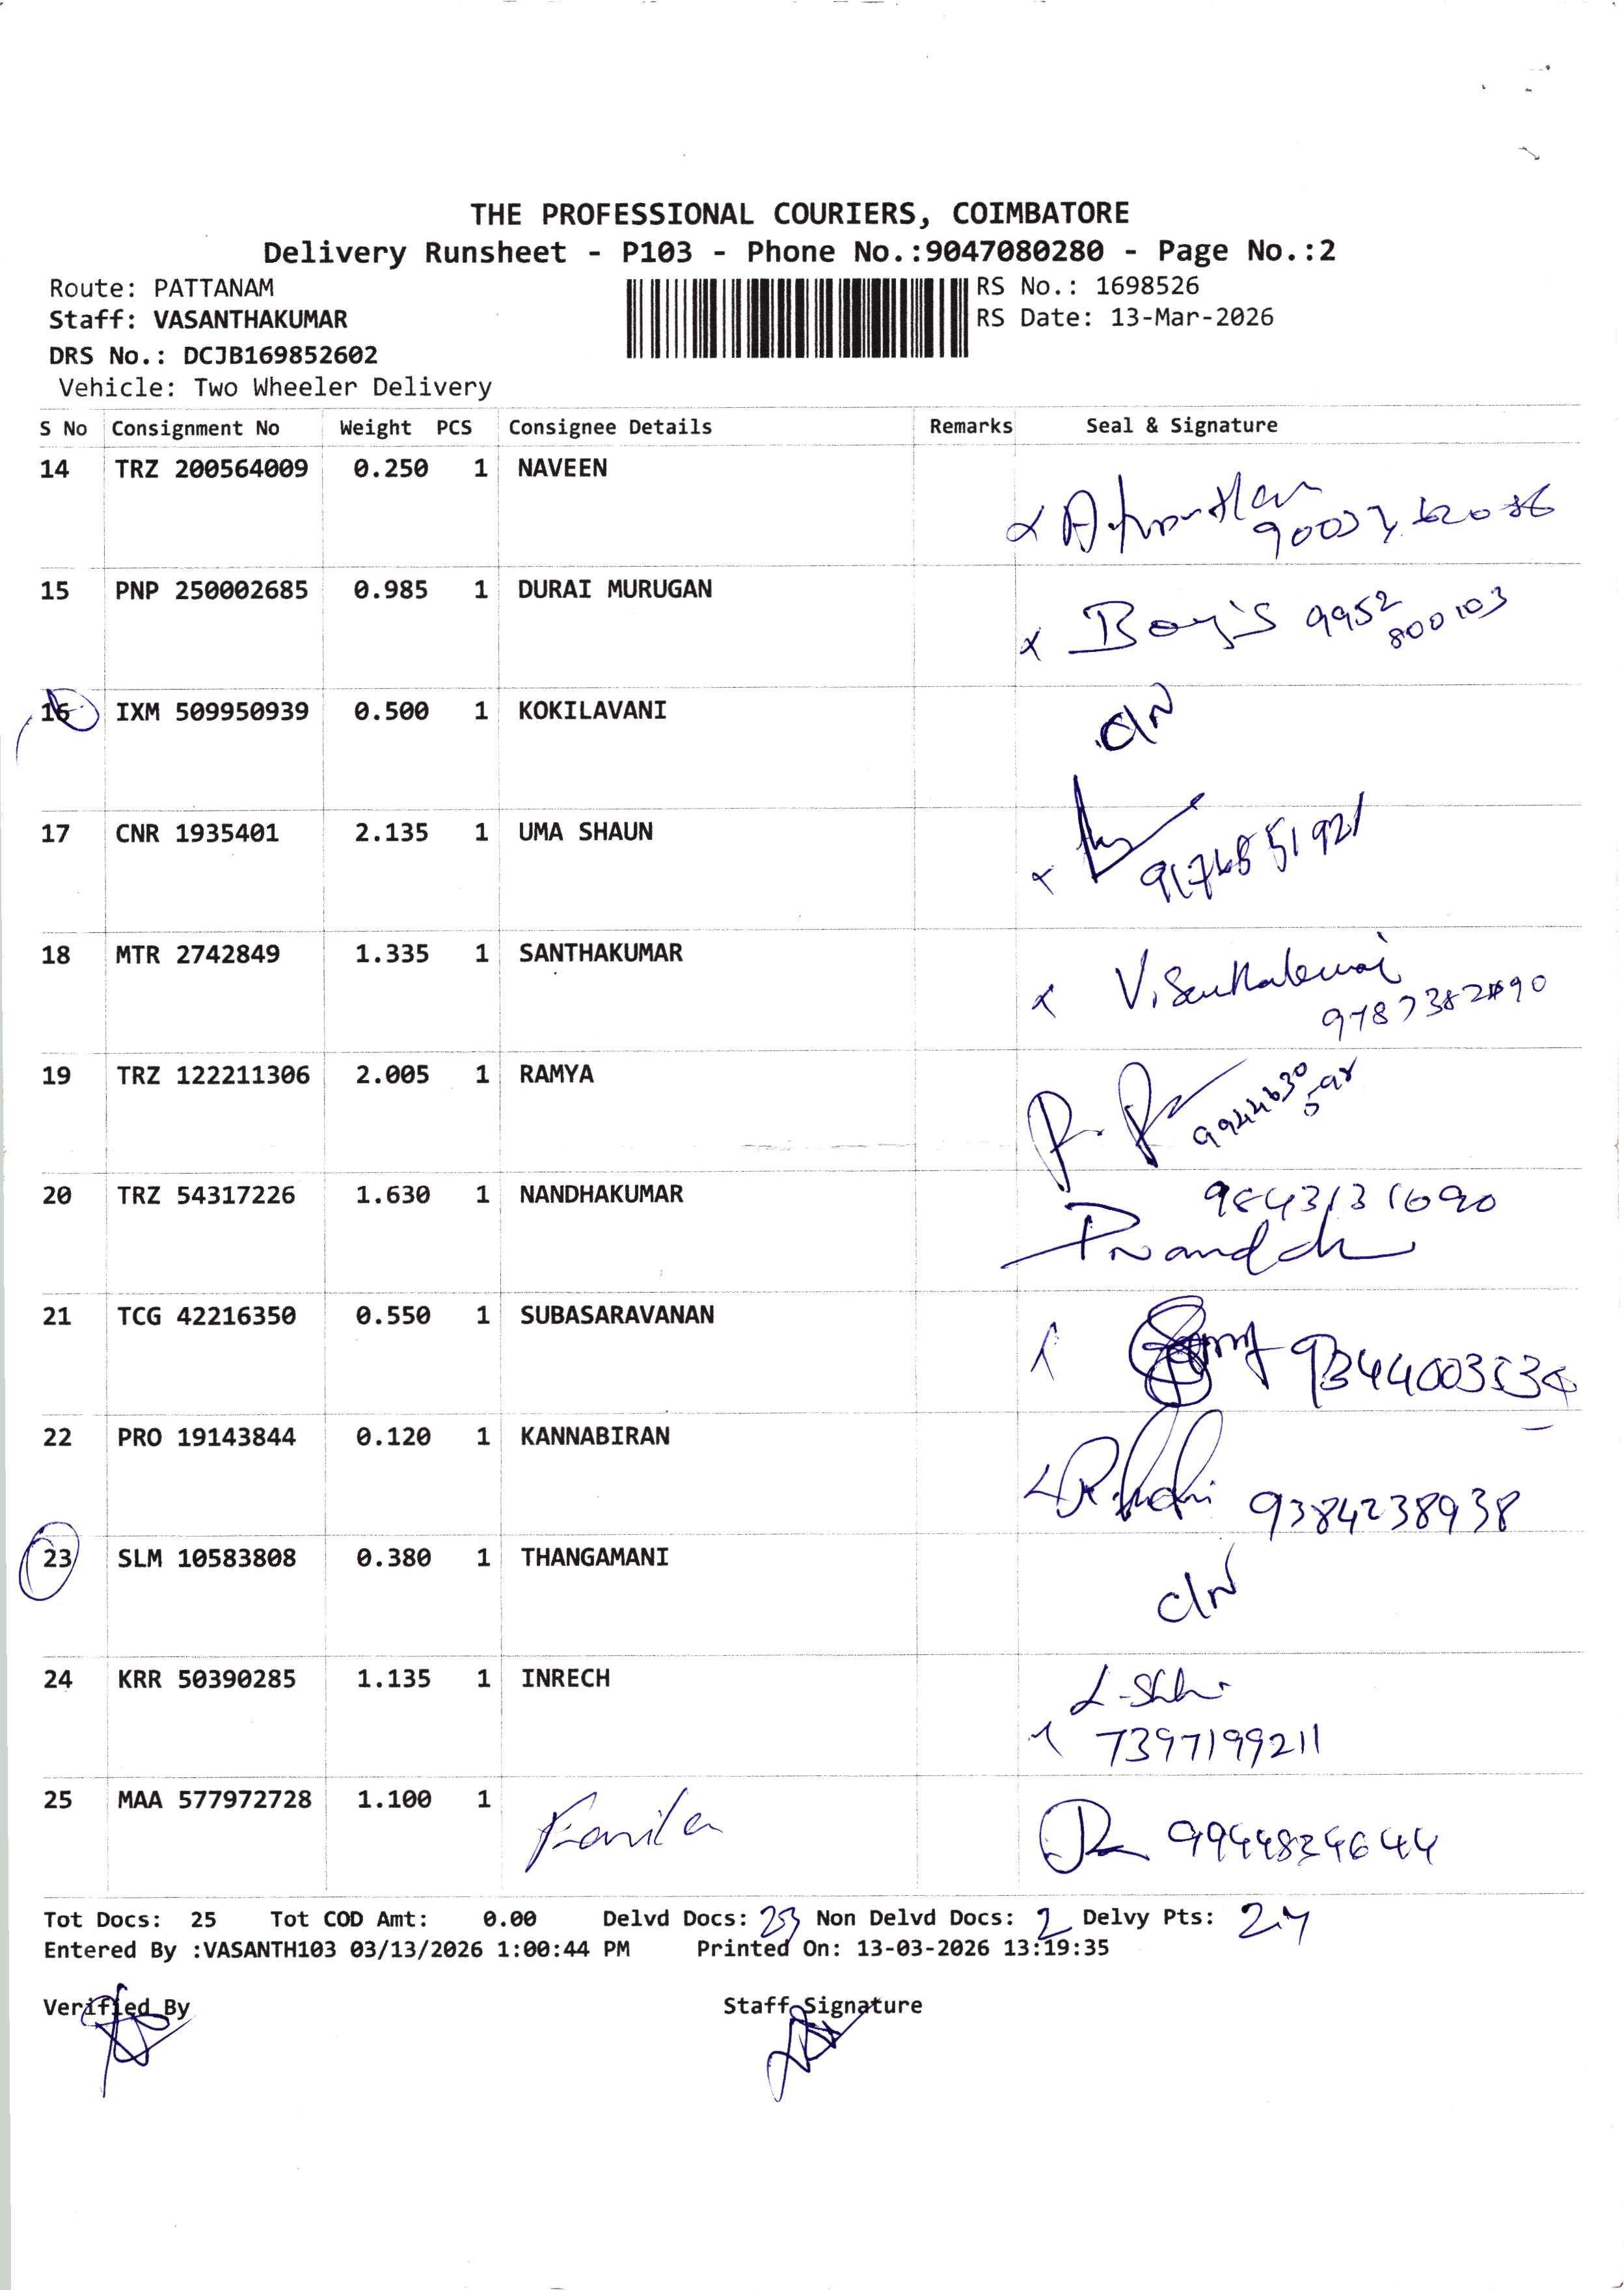 THE PROFESSIONAL COURIERS, COIMBATORE
Delivery Runsheet - P103 - Phone No.:9047080280 - Page No.:2
Route: PATTANAM
RS No.: 1698526
Staff: VASANTHAKUMAR
RS Date: 13-Mar-2026
DRS No.: DCJB169852602
Vehicle: Two Wheeler Delivery
S No Consignment No Weight PCS Consignee Details Remarks Seal & Signature
14 TRZ 200564009 0.250 1 NAVEEN
15 PNP 250002685 0.985 1 DURAI MURUGAN
Boy's 9952
800103
16 IXM 509950939 0.500 1 KOKILAVANI
17 CNR 1935401 2.135 1 UMA SHAUN
18 MTR 2742849 1.335 1 SANTHAKUMAR
19 TRZ 122211306 2.005 1 RAMYA
20 TRZ 54317226 1.630 1 NANDHAKUMAR
21 TCG 42216350 0.550 1 SUBASARAVANAN
22 PRO 19143844 0.120 1 KANNABIRAN
9384238938
23 SLM 10583808 0.380 1 THANGAMANI
24 KRR 50390285 1.135 1 INRECH
7397199211
25 MAA 577972728 1.100 1
Tot Docs: 25 Tot COD Amt: 0.00 Delvd Docs: 23 Non Delvd Docs: 2 Delvy Pts:
Entered By :VASANTH103 03/13/2026 1:00:44 PM Printed On: 13-03-2026 13:19:35
Verified By Staff Signature